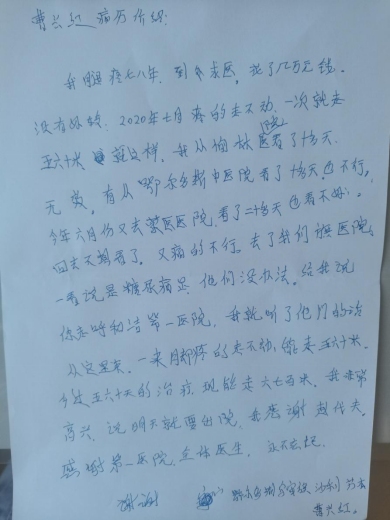 曹兴红 病历介绍：
我腿疼七八年，到处求医，花了几万元钱，
没有好转，2020年七月疼的走不动，一次就走
五六十米 就这样，我从榆林医院看了十多天
无效，有从鄂尔多斯中医院看了十多天也不行，
今年六月份又去蒙医医院，看了二十多天也看不好，
回去不想看了，又痛的不行，去了我们旗医院，
一看说是糖尿病足，他们没办法，给我说
你去呼和浩第一医院，我就听了他们的话
从定来，一来用脚疼的走不动，能走五六十米，
今过五六十天的治疗，现能走六七百米，我非常
高兴，说明天就要出院，我感谢赵代夫
感谢第一医院，全体医生，永不忘记
谢谢 鄂尔多斯
曹兴红。